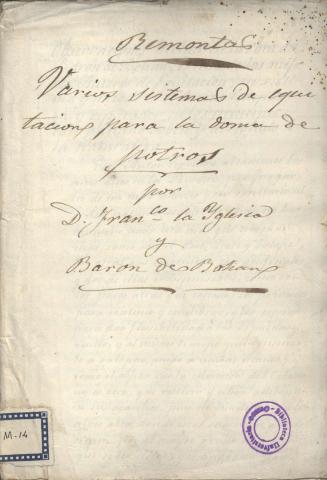 Remontas
Varios sistemas de equi
tacions para la doma de
potros
por
D. Fran.co la Yglesia
y
Baron de Bohan
M-14
Biblioteca Universitaria